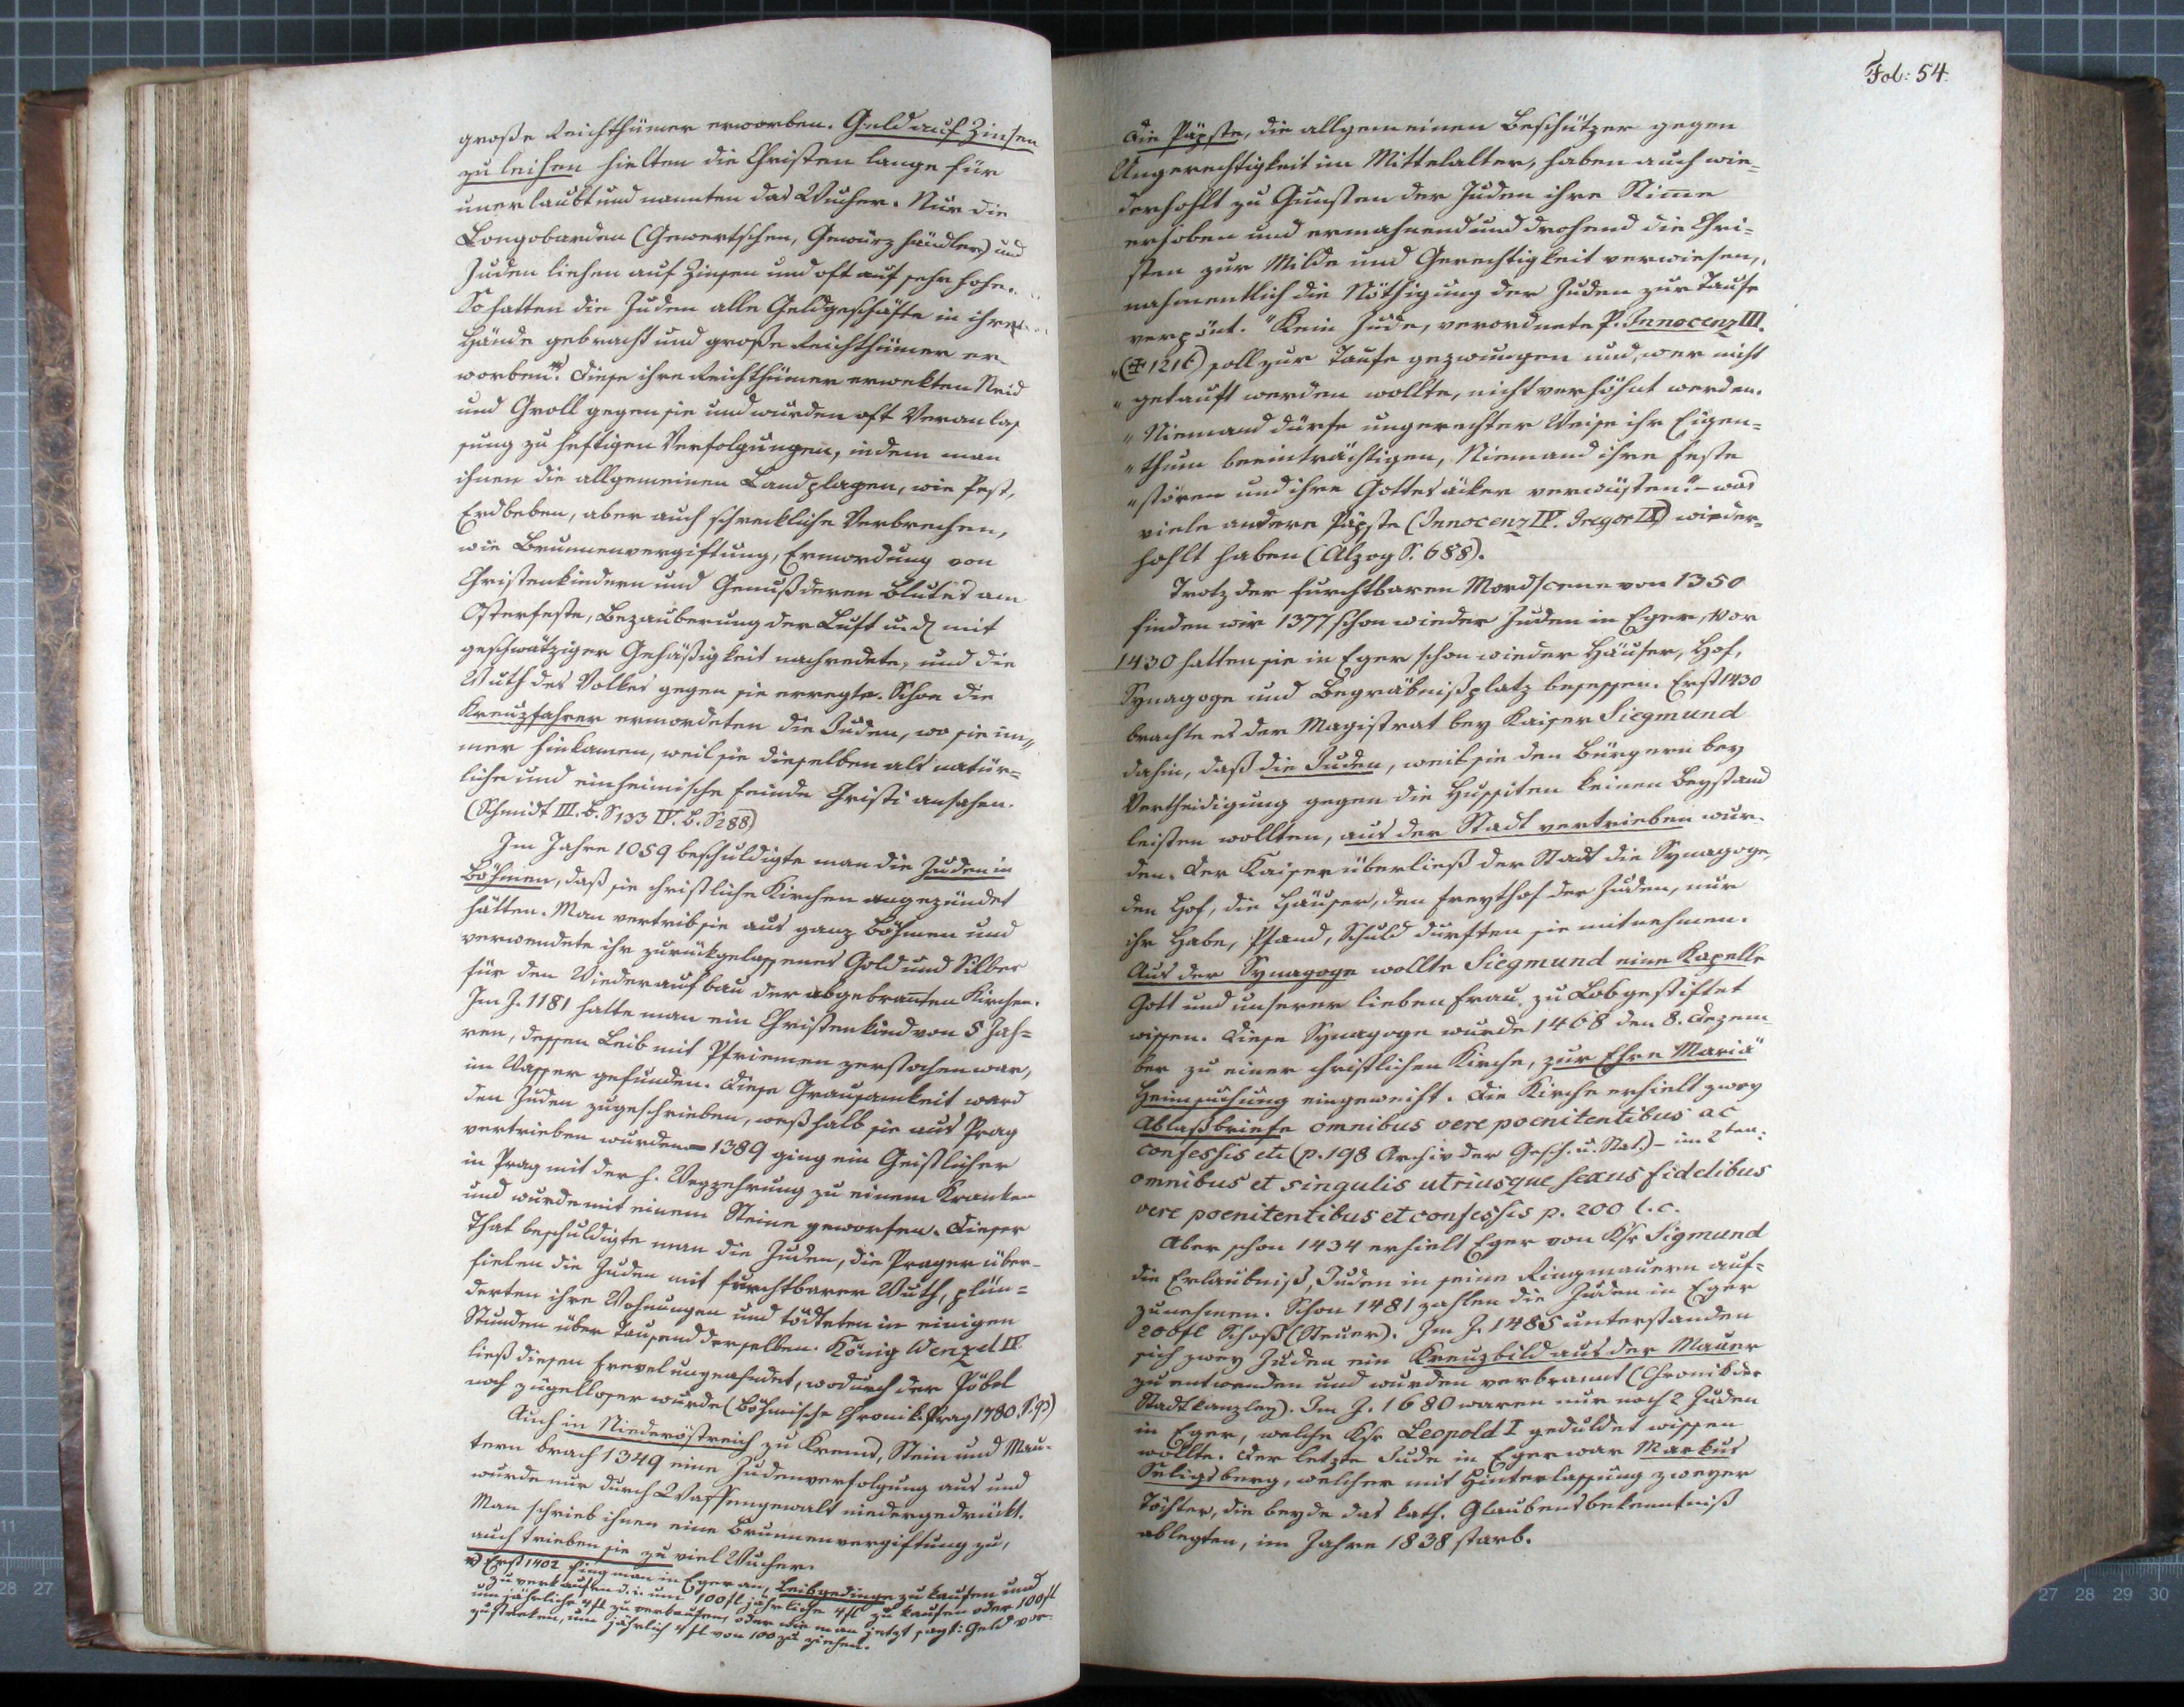 große Reichthümer erworben. Geld auf Zinsen
zu leihen hielten die Christen lange für
unerlaubt und nannten das Wucher. Nur die
Longobarden (Gewertschen, Gewürzhändler) und
Juden liehen auf Zinsen und oft auf sehr hohe.
So hatten die Juden alle Geldgeschäfte in ihre
Hände gebracht und große Reichthümer er
worben.*) Diese ihre Reichthümer erwekten Neid
und Groll gegen sie und wurden oft Veranlas
sung zu heftigen Verfolgungen, indem man
ihnen die allgemeinen Landplagen, wie Pest,
Erdbeben, aber auch schreckliche Verbrechen,
wie Brunnenvergiftung, Ermordung von
Christenkindern und Genuß deren Blutes am
Osterfeste, Bezauberung der Luft u.d mit
geschwätziger Gehäßigkeit nachredete, und die
Wuth des Volkes gegen sie erregte. Schon die
Kreuzfahrer ermordeten die Juden, wo sie im„
mer hinkamen, weil sie dieselben als natür=
liche und einheimische Feinde Christi ansahen.
(Schmidt III. B. S 133 IV. B. S 288)
Im Jahre 1059 beschuldigte man die Juden in
Böhmen, daß sie christliche Kirchen angezündet
hätten. Man vertrib sie aus ganz Böhmen und
verwendete ihr zurückgelassenes Gold und Silber
für den Wiederaufbau der abgebrañten Kirchen.
Im J. 1181 hatte man ein Christenkind von 5 Jah=
ren, dessen Leib mit Pfriemen zerstochen war,
im Wasser gefunden. Diese Grausamkeit ward
den Juden zugeschrieben, weßhalb sie aus Prag
vertrieben wurden – 1389 ging ein Geistlicher
in Prag mit der h. Wegzehrung zu einem Kranken
und wurde mit einem Steine geworfen. Dieser
That beschuldigte man die Juden, die Prager über-
fielen die Juden mit furchtbarer Wuth, plün=
derten ihre Wohnungen und tödteten in einigen
Stunden über Tausend derselben. König Wenzel IV.
ließ diesen Frevel ungeahndet, wodurch der Pöbel
noch zügelloser wurde (Böhmische Chronik. Prag 1780 S. 93)
Auch in Niederöstreich zu Krems, Stein und Mau-
tern brach 1349 eine Judenverfolgung aus und
wurde nur durch Waffengewalt niedergedrückt.
Man schrieb ihnen eine Brunnenvergiftung zu,
auch trieben sie zu viel Wucher.
*) Erst 1402 fing man in Eger an, Leibgedinge zu kaufen und
zu verkaufen d. i. um 100 fl jährliche 4 fl zu kaufen oder 100 fl
um jährliche 4 fl zu verkaufen, oder wie man jetzt sagt: Geld vor-
zustreken, um jährlich 4 fl von 100 zu ziehen.
Fol: 54.
Die Päpste, die allgemeinen Beschützer gegen
Ungerechtigkeit im Mittelalter, haben auch wie=
derhohlt zu Gunsten der Juden ihre Stim̃e
erhoben und ermahnend und drohend die Chri=
sten zur Milde und Gerechtigkeit verwiesen,
nahmentlich die Nöthigung der Juden zur Taufe
verpönt. "Kein Jude, verordnete P. Innocenz III.
„(✠ 1216) soll zur Taufe gezwungen und, wer nicht
„getauft werden wollte, nicht verhöhnt werden.
„Niemand dürfe ungerechter Weise ihr Eigen=
„thum beeinträchtigen, Niemand ihre Feste
„stören und ihre Gottesäcker verwüsten." – was
viele andere Päpste (Innocenz IV. Gregor IX) wieder=
hohlt haben (Alzog S. 688).
Trotz der furchtbaren Mordscene von 1350
finden wir 1377 schon wieder Juden in Eger, Vor
1430 hatten sie in Eger schon wieder Häuser, Hof,
Synagoge und Begräbnißplatz besessen. Erst 1430
brachte es der Magistrat bey Kaiser Siegmund
dahin, daß die Juden, weil sie den Bürgern bey
Vertheidigung gegen die Hussiten keinen Beystand
leisten wollten, aus der Stadt vertrieben wur-
den. Der Kaiser überließ der Stadt die Synagoge,
den Hof, die Häuser, den Freythof der Juden, nur
ihr Habe, Pfand, Schuld durften sie mitnehmen.
Aus der Synagoge wollte Siegmund eine Kapelle
Gott und unserer lieben Frau zu Lob gestiftet
wissen. Diese Synagoge wurde 1468 den 8. Dezem-
ber zu einer christlichen Kirche, zur Ehre Mariä
Heimsuchung eingeweiht. Die Kirche erhielt zwey
Ablaßbriefe omnibus vere poenitentibus ac
confessis etc (p. 198 Archiv der Gesch. u. Stat.) – im 2ten:
omnibus et singulis utriusque sexus fidelibus
vere poenitentibus et confessis p. 200 l. c.
Aber schon 1434 erhielt Eger von Ksr Sigmund
die Erlaubniß, Juden in seine Ringmauern auf=
zunehmen. Schon 1481 zahlen die Juden in Eger
200 fl Schoß (Steuer). Im J. 1485 unterstanden
sich zwey Juden ein Kreuzbild aus der Mauer
zu entwenden und wurden verbrannt (Chronik der
Stadtkanzley). Im J. 1680 waren nur noch 2 Juden
in Eger, welche Ksr Leopold I geduldet wissen
wollte. Der letzte Jude in Eger war Markus
Seligsberg, welcher mit Hinterlassung zweyer
Töchter, die beyde das kath. Glaubensbekenntniß
ablegten, im Jahre 1838 starb.
11
28 27
27 28 29 30